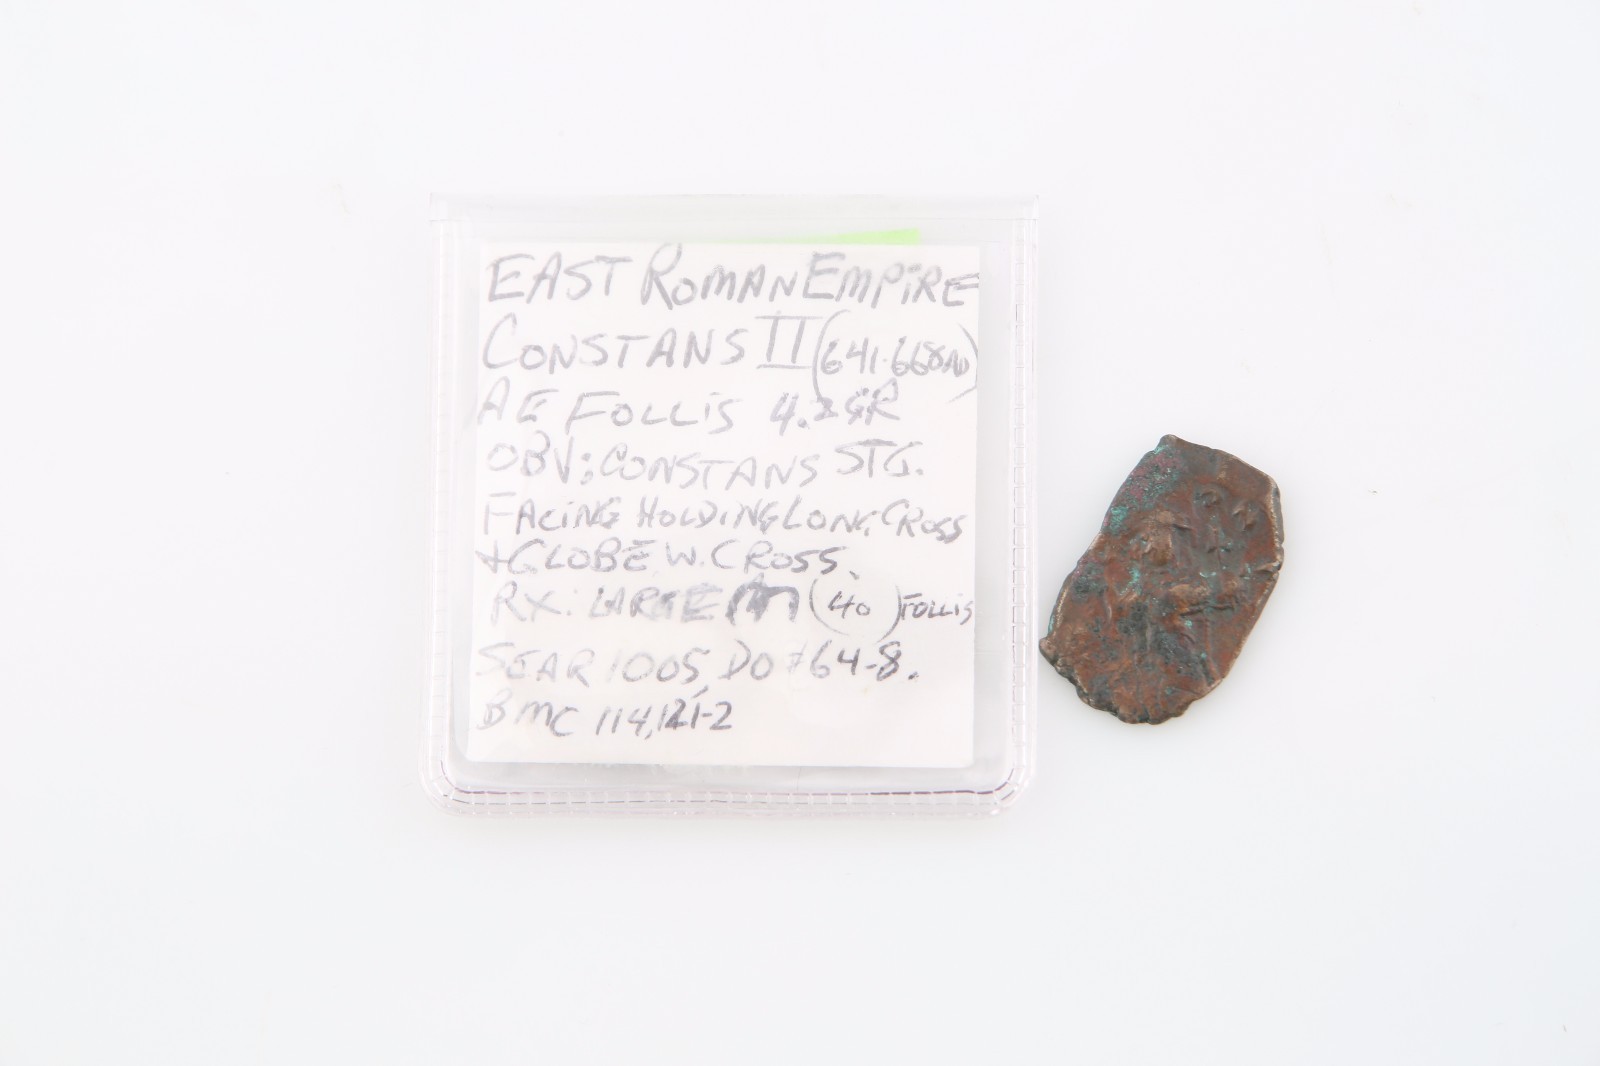 EAST ROMAN EMPIRE
CONSTANS II (641-668 AD)
AE FOLLIS 4.2 GR
OBV: CONSTANS STG.
FACING HOLDING LONG CROSS
+ GLOBE W. CROSS.
RX: LARGE M (40) FOLLIS
SEAR 1005, DO #64-8.
BMC 114, 121-2